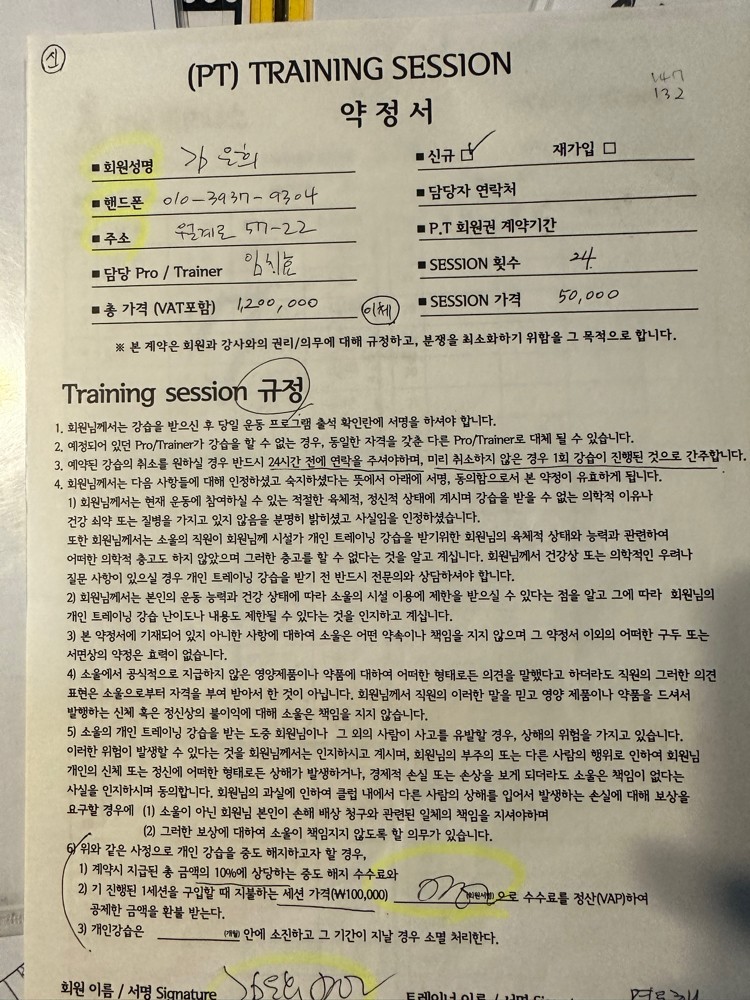 신
(PT) TRAINING SESSION
147
132
약정서
■ 회원성명 김은희
■ 신규 ☑ 재가입 □
■ 핸드폰 010-3937-9304
■ 담당자 연락처
■ 주소 월계로 57-22
■ P.T 회원권 계약기간
■ 담당 Pro / Trainer 임치효
■ SESSION 횟수 24
■ 총 가격 (VAT포함) 1,200,000 이체
■ SESSION 가격 50,000
※ 본 계약은 회원과 강사와의 권리/의무에 대해 규정하고, 분쟁을 최소화하기 위함을 그 목적으로 합니다.
Training session 규정
1. 회원님께서는 강습을 받으신 후 당일 운동 프로그램 출석 확인란에 서명을 하셔야 합니다.
2. 예정되어 있던 Pro/Trainer가 강습을 할 수 없는 경우, 동일한 자격을 갖춘 다른 Pro/Trainer로 대체 될 수 있습니다.
3. 예약된 강습의 취소를 원하실 경우 반드시 24시간 전에 연락을 주셔야하며, 미리 취소하지 않은 경우 1회 강습이 진행된 것으로 간주합니다.
4. 회원님께서는 다음 사항들에 대해 인정하셨고 숙지하셨다는 뜻에서 아래에 서명, 동의함으로서 본 약정이 유효하게 됩니다.
1) 회원님께서는 현재 운동에 참여하실 수 있는 적절한 육체적, 정신적 상태에 계시며 강습을 받을 수 없는 의학적 이유나
건강 쇠약 또는 질병을 가지고 있지 않음을 분명히 밝히셨고 사실임을 인정하셨습니다.
또한 회원님께서는 소울의 직원이 회원님께 시설가 개인 트레이닝 강습을 받기위한 회원님의 육체적 상태와 능력과 관련하여
어떠한 의학적 충고도 하지 않았으며 그러한 충고를 할 수 없다는 것을 알고 계십니다. 회원님께서 건강상 또는 의학적인 우려나
질문 사항이 있으실 경우 개인 트레이닝 강습을 받기 전 반드시 전문의와 상담하셔야 합니다.
2) 회원님께서는 본인의 운동 능력과 건강 상태에 따라 소울의 시설 이용에 제한을 받으실 수 있다는 점을 알고 그에 따라 회원님의
개인 트레이닝 강습 난이도나 내용도 제한될 수 있다는 것을 인지하고 계십니다.
3) 본 약정서에 기재되어 있지 아니한 사항에 대하여 소울은 어떤 약속이나 책임을 지지 않으며 그 약정서 이외의 어떠한 구두 또는
서면상의 약정은 효력이 없습니다.
4) 소울에서 공식적으로 지급하지 않은 영양제품이나 약품에 대하여 어떠한 형태로든 의견을 말했다고 하더라도 직원의 그러한 의견
표현은 소울으로부터 자격을 부여 받아서 한 것이 아닙니다. 회원님께서 직원의 이러한 말을 믿고 영양 제품이나 약품을 드셔서
발행하는 신체 혹은 정신상의 불이익에 대해 소울은 책임을 지지 않습니다.
5) 소울의 개인 트레이닝 강습을 받는 도중 회원님이나 그 외의 사람이 사고를 유발할 경우, 상해의 위험을 가지고 있습니다.
이러한 위험이 발생할 수 있다는 것을 회원님께서는 인지하시고 계시며, 회원님의 부주의 또는 다른 사람의 행위로 인하여 회원님
개인의 신체 또는 정신에 어떠한 형태로든 상해가 발생하거나, 경제적 손실 또는 손상을 보게 되더라도 소울은 책임이 없다는
사실을 인지하시며 동의합니다. 회원님의 과실에 인하여 클럽 내에서 다른 사람의 상해를 입어서 발생하는 손실에 대해 보상을
요구할 경우에 (1) 소울이 아닌 회원님 본인이 손해 배상 청구와 관련된 일체의 책임을 지셔야하며
(2) 그러한 보상에 대하여 소울이 책임지지 않도록 할 의무가 있습니다.
6) 위와 같은 사정으로 개인 강습을 중도 해지하고자 할 경우,
1) 계약시 지급된 총 금액의 10%에 상당하는 중도 해지 수수료와
2) 기 진행된 1세션을 구입할 때 지불하는 세션 가격(₩100,000) (회원서명) 으로 수수료를 정산(VAP)하여
공제한 금액을 환불 받는다.
3) 개인강습은 (개월) 안에 소진하고 그 기간이 지날 경우 소멸 처리한다.
회원 이름 / 서명 Signature 김은희
트레이너 이름 / 서명